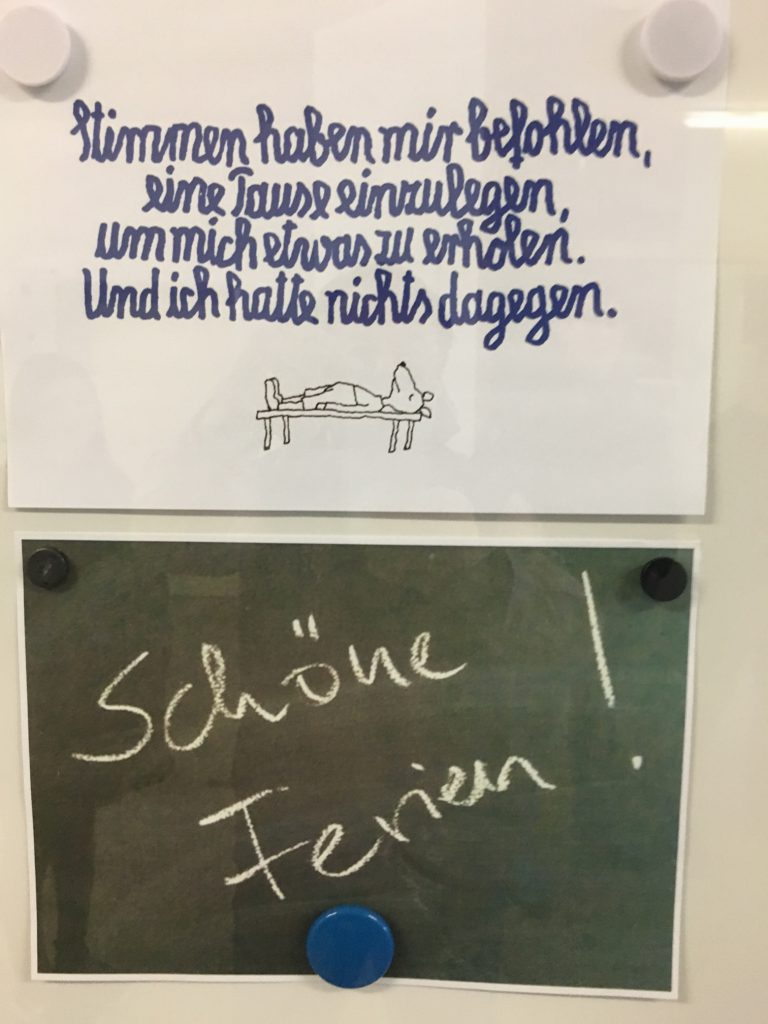 Stimmen haben mir befohlen,
eine Pause einzulegen,
um mich etwas zu erholen.
Und ich hatte nichts dagegen.
Schöne
Ferien!